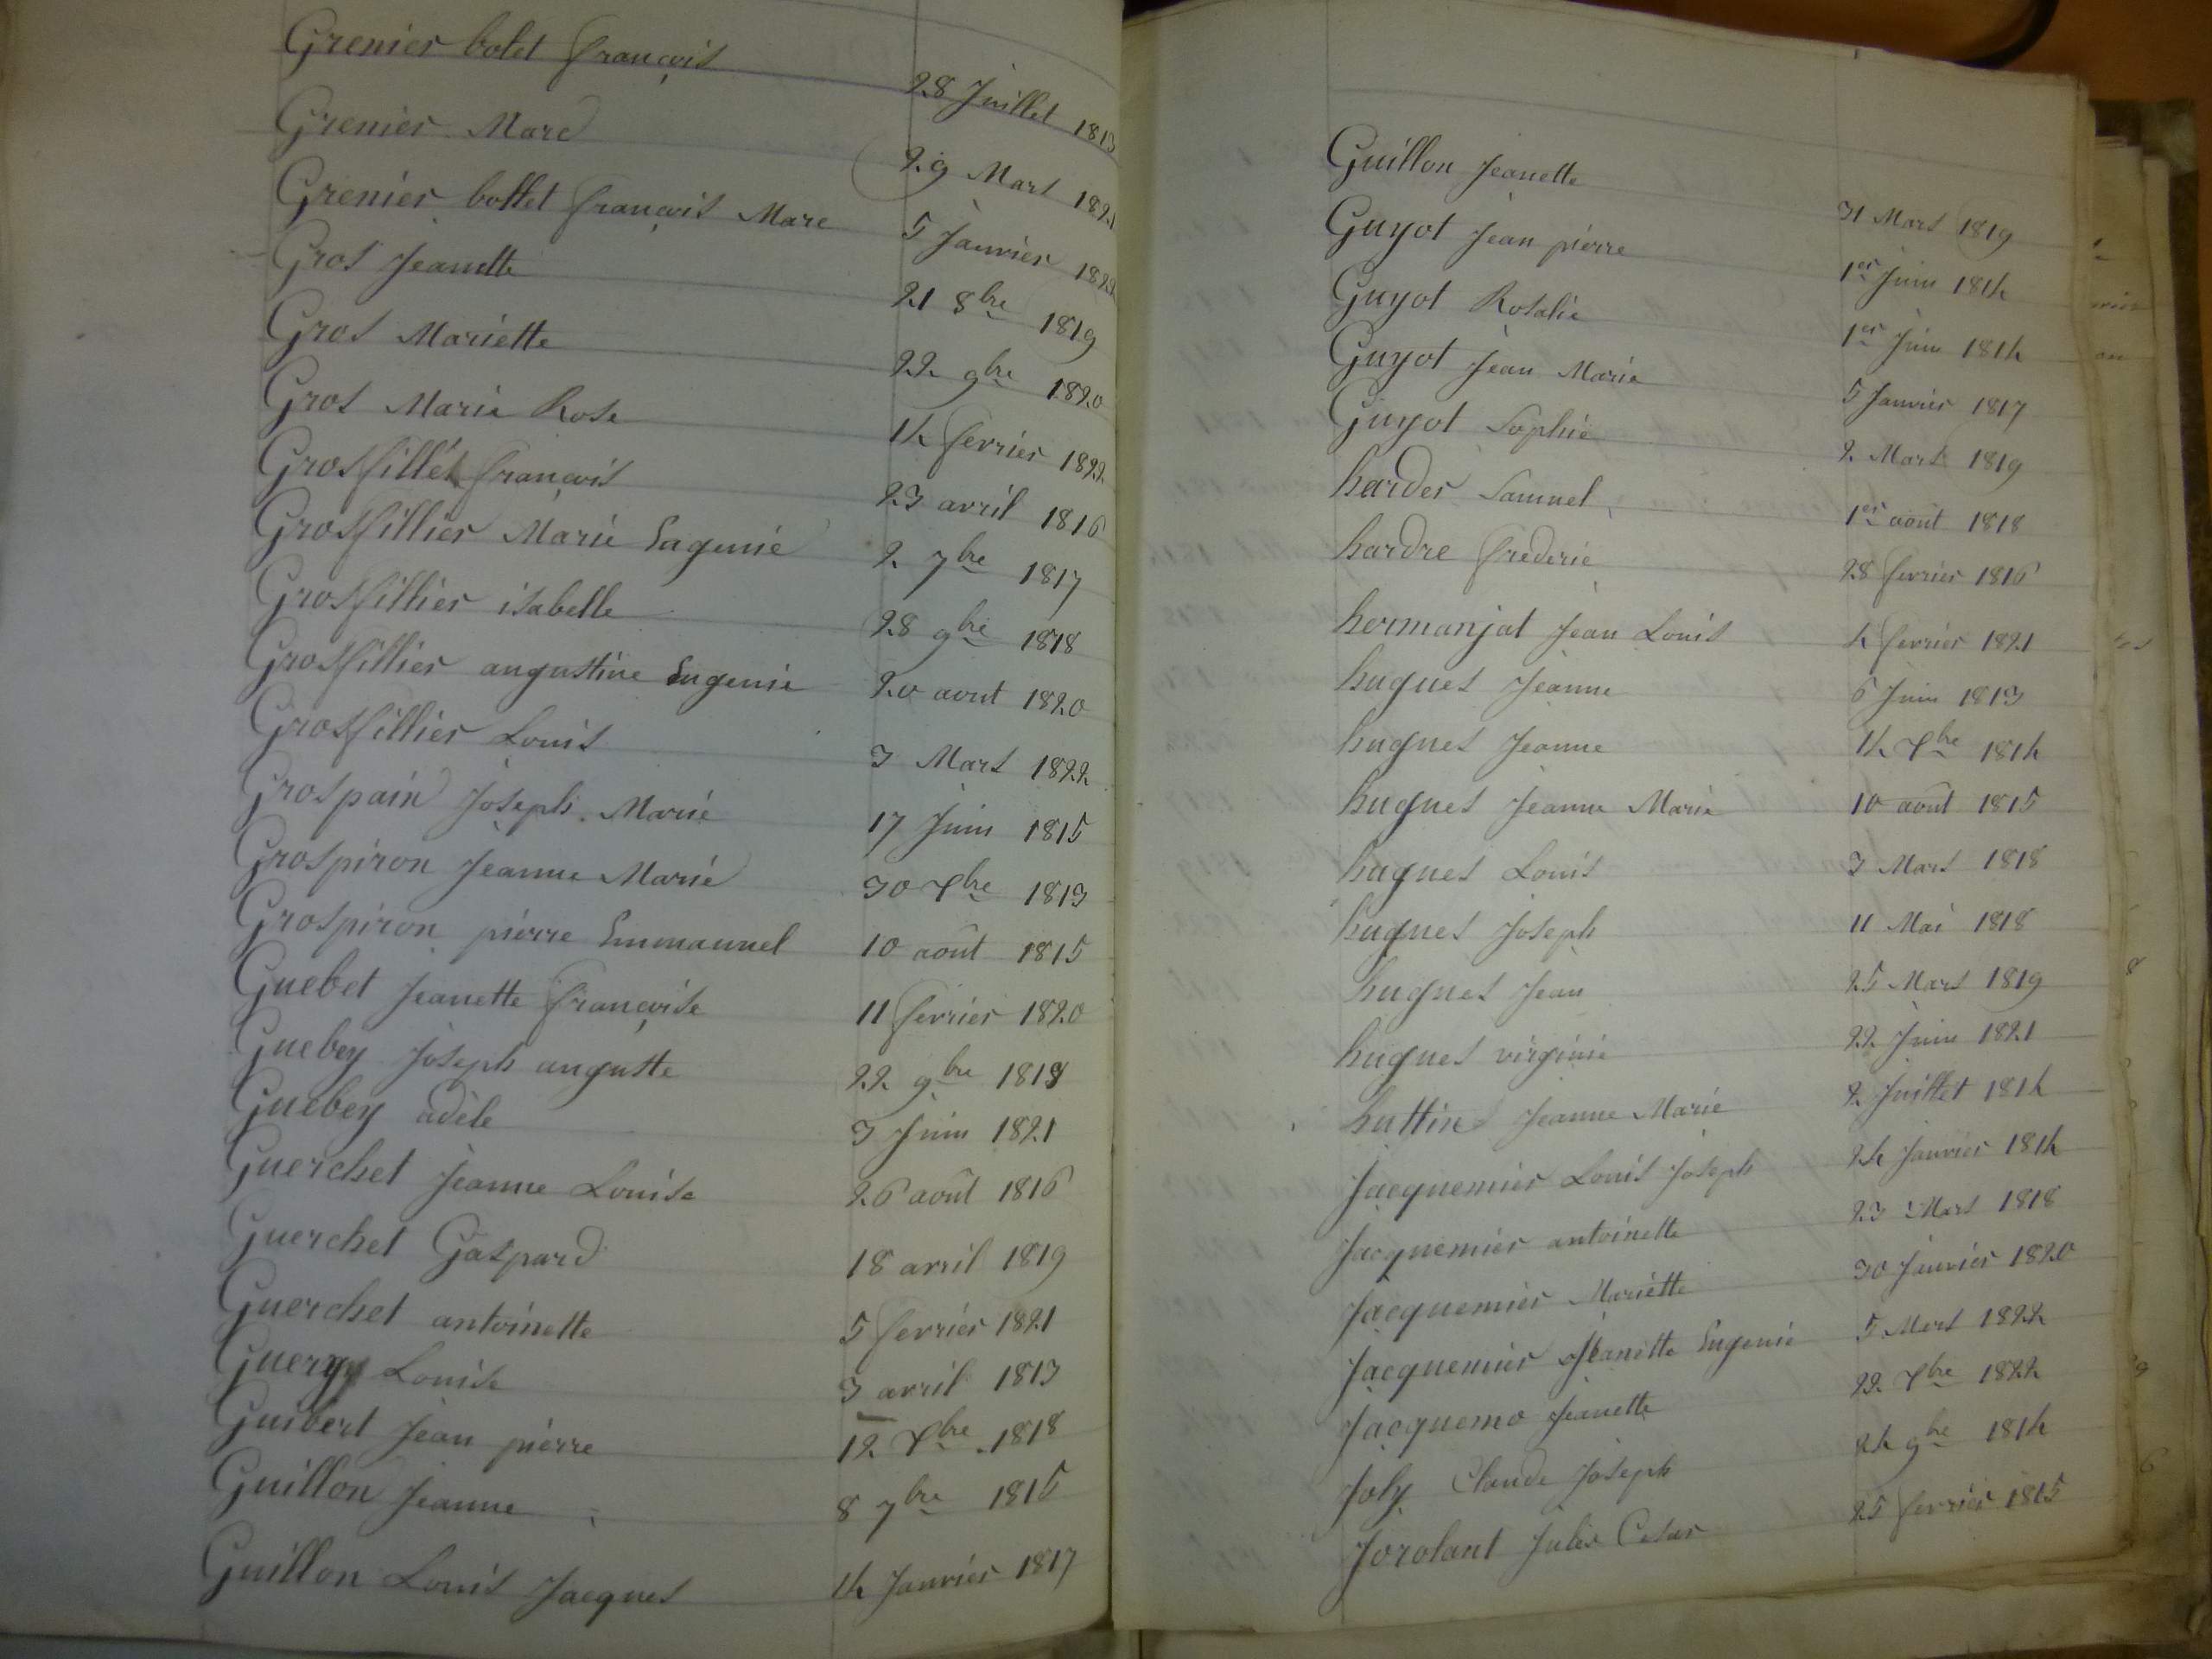 Grenier bolet françois 28 Juillet 1813
Grenier Marc 29 Mars 1821
Grenier bottet françois Marc 5 Janvier 1822
Gros Jeanette 21 8bre 1819
Gros Mariette 22 9bre 1820
Gros Marie Rose 14 fevrier 1822
Grosfillet françois 23 avril 1816
Grosfillier Marie Eugenie 2 7bre 1817
Grosfillier isabelle 28 9bre 1818
Grosfillier augustine Eugenie 20 aout 1820
Grosfillier Louis 3 Mars 1822
Grospain Joseph Marie 17 Juin 1815
Grospiron Jeanne Marie 30 Xbre 1813
Grospiron pierre Emmanuel 10 août 1815
Guebet Jeanette françoise 11 fevrier 1820
Guebey Joseph auguste 22 9bre 1818
Guebey adèle 3 Juin 1821
Guerchet Jeanne Louise 26 août 1816
Guerchet Gaspard 18 avril 1819
Guerchet antoinette 5 fevrier 1821
Guery Louise 3 avril 1813
Guibert Jean pierre 12 Xbre 1818
Guillon Jeanne 8 7bre 1815
Guillon Louis Jacques 14 Janvier 1817
Guillon Jeanette 31 Mars 1819
Guyot Jean pierre 1er Juin 1814
Guyot Rosalie 1er Juin 1814
Guyot Jean Marie 5 Janvier 1817
Guyot Sophie 2 Mars 1819
harder Samuel 1er août 1818
hardre frederic 28 fevrier 1816
hermanjat Jean Louis 4 fevrier 1821
hugues Jeanne 6 Juin 1813
hugues Jeanne 14 Xbre 1814
hugues Jeanne Marie 10 août 1815
hugues Louis 3 Mars 1818
hugues Joseph 11 Mai 1818
hugues Jean 25 Mars 1819
hugues virginie 22 Juin 1821
huttin Jeanne Marie 2 Juillet 1814
Jacquemier Louis Joseph 24 Janvier 1814
Jacquemier antoinette 23 Mars 1818
Jacquemier Mariette 30 Janvier 1820
Jacquemier Jeanette Eugenie 5 Mars 1822
Jacquemo Jeanette 22 Xbre 1822
Joly Claude Joseph 24 9bre 1814
Jorolant Jules Cesar 25 fevrier 1815